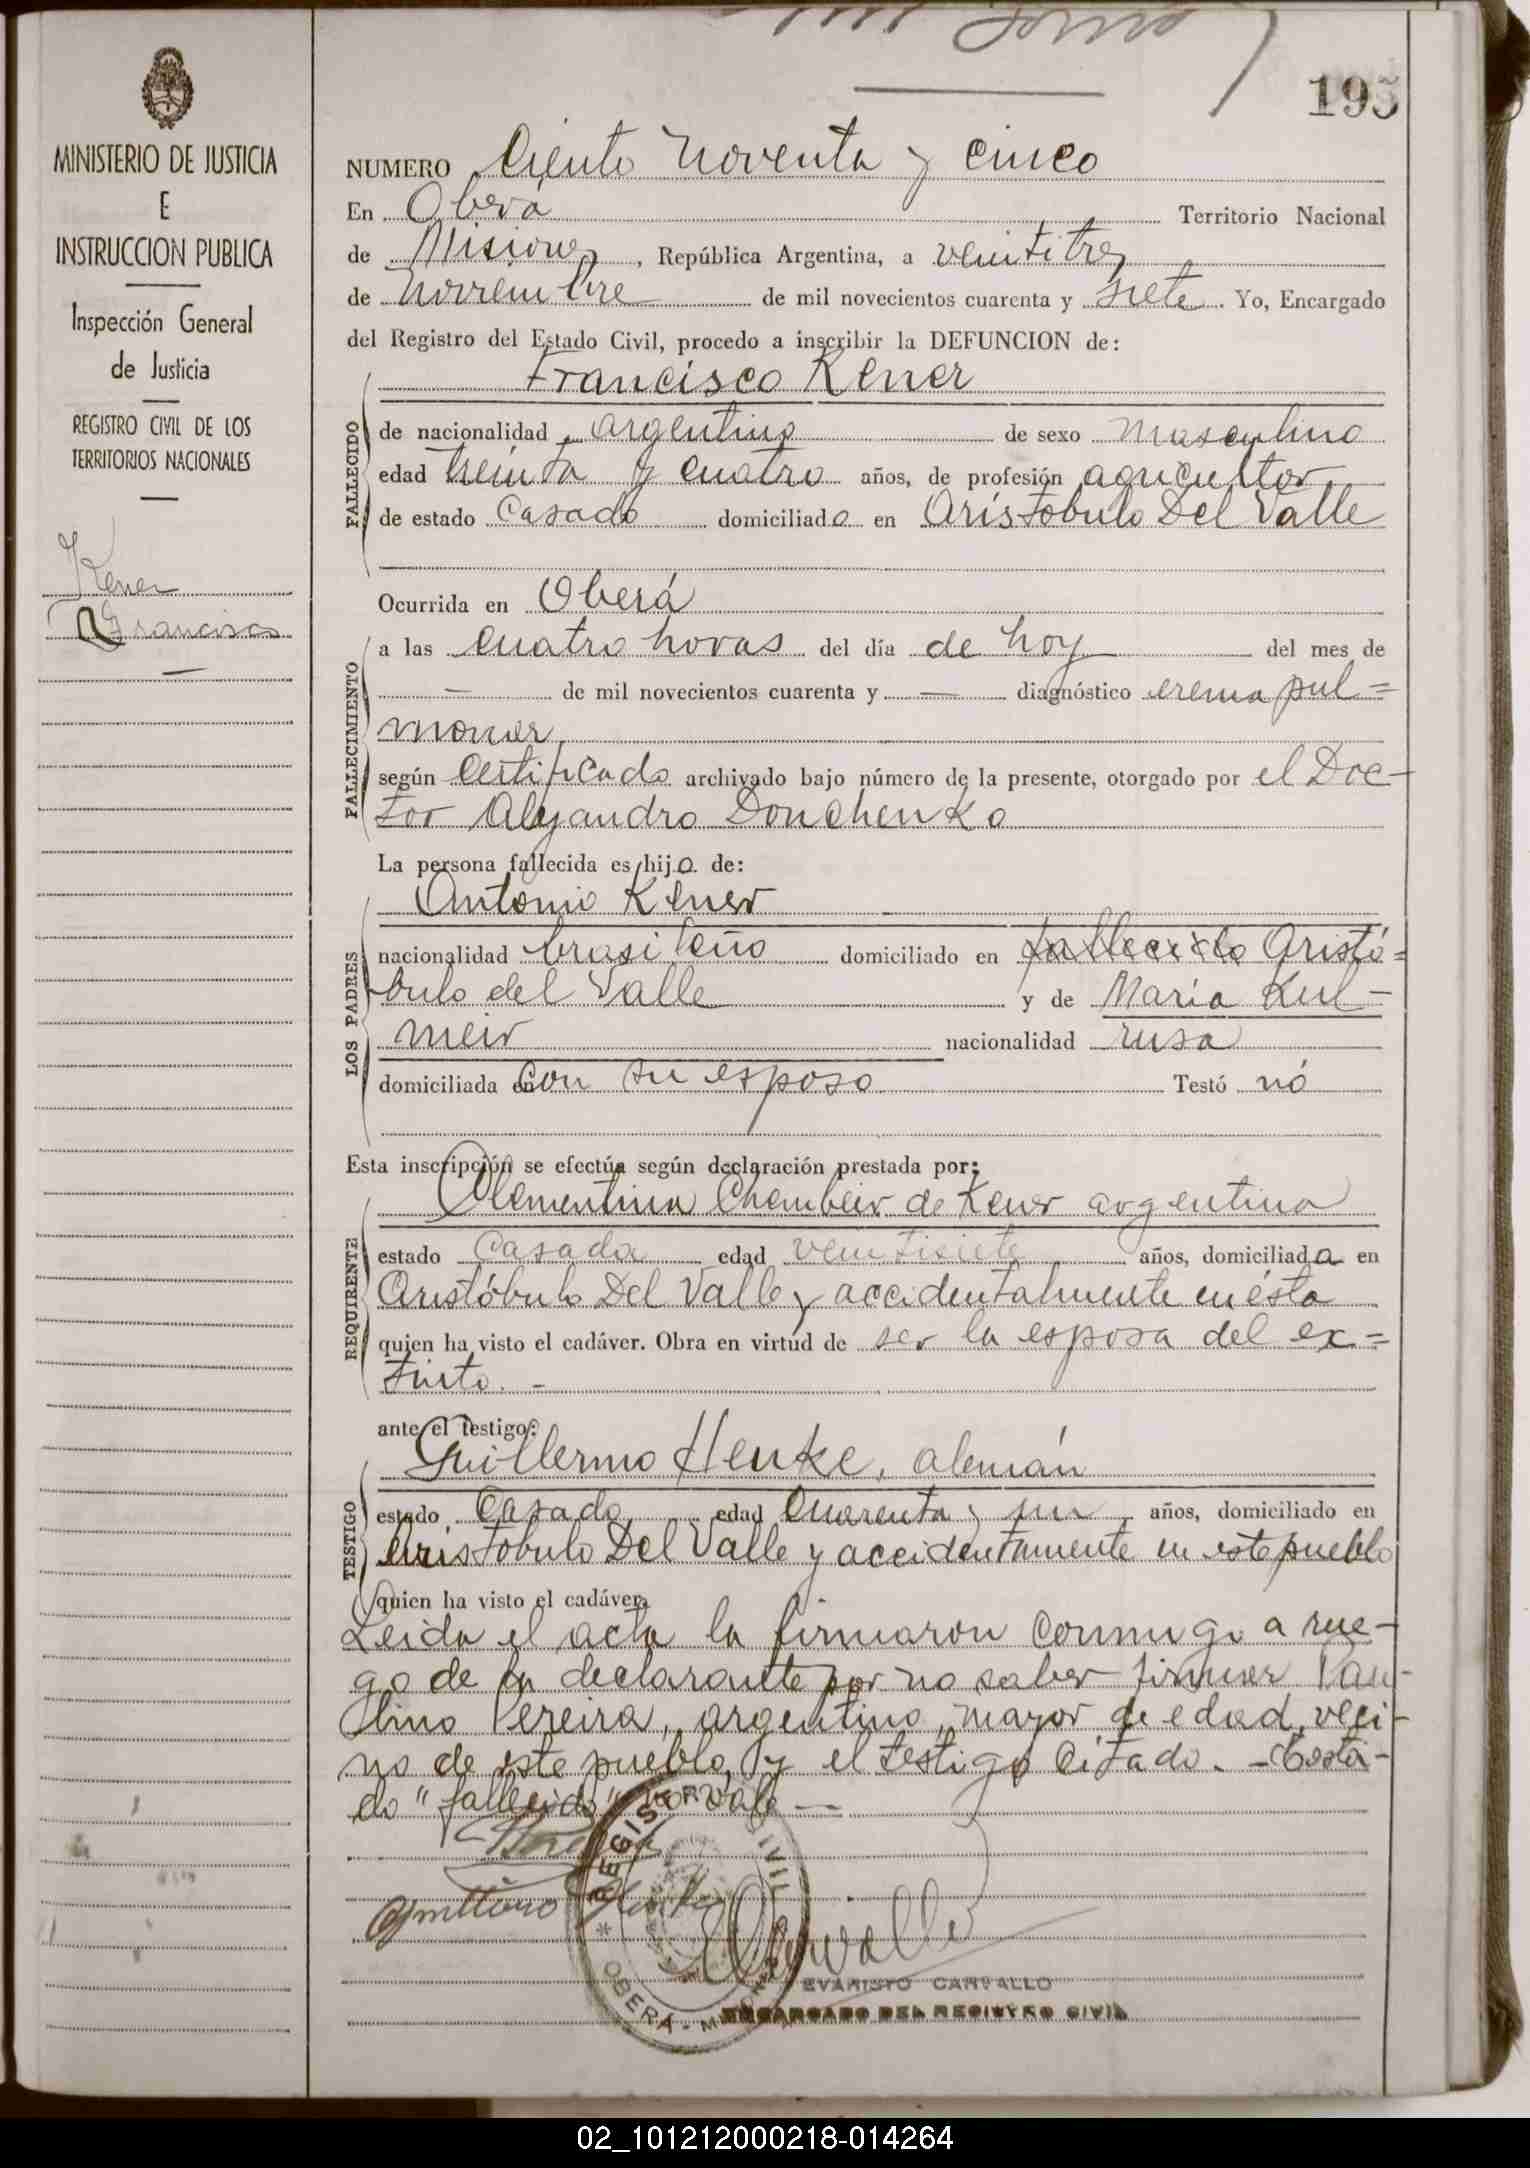 195
MINISTERIO DE JUSTICIA
E
INSTRUCCION PUBLICA
Inspección General
de Justicia
REGISTRO CIVIL DE LOS
TERRITORIOS NACIONALES
Kener
Francisco
NUMERO Ciento noventa y cinco
En Oberá Territorio Nacional
de Misiones, República Argentina, a veintitres
de noviembre de mil novecientos cuarenta y siete. Yo, Encargado
del Registro del Estado Civil, procedo a inscribir la DEFUNCION de:
Francisco Kener
FALLECIDO
de nacionalidad argentino de sexo masculino
edad treinta y cuatro años, de profesión agricultor
de estado casado domiciliado en Aristobulo Del Valle
Ocurrida en Oberá
FALLECIMIENTO
a las cuatro horas del día de hoy del mes de
— de mil novecientos cuarenta y — diagnóstico erema pul=
monar
según certificado archivado bajo número de la presente, otorgado por el Doc-
tor Alejandro Donchenko
La persona fallecida es hijo de:
LOS PADRES
Antonio Kener
nacionalidad brasileño domiciliado en fallecido Aristó=
bulo del Valle y de Maria Kul-
meir nacionalidad rusa
domiciliada en con su esposo Testó nó
Esta inscripción se efectúa según declaración prestada por:
REQUIRENTE
Clementina Chambeir de Kener argentina
estado casada edad veintisiete años, domiciliada en
Aristóbulo Del Valle y accidentalmente en ésta
quien ha visto el cadáver. Obra en virtud de ser la esposa del ex=
tinto. -
ante el testigo:
TESTIGO
Guillermo Henke, alemán
estado casado edad cuarenta y un años, domiciliado en
Aristobulo Del Valle y accidentamente en este pueblo
quien ha visto el cadáver.
Leida el acta la firmaron conmigo a rue-
go de la declarante por no saber firmar Pau-
lino Pereira, argentino, mayor de edad, veci-
no de este pueblo y el testigo citado. - Testa-
do "fallecido" no vale —
REGISTRO CIVIL
* OBERÁ - MISIONES
Carvallo
EVARISTO CARVALLO
ENCARGADO DEL REGISTRO CIVIL
02_101212000218-014264